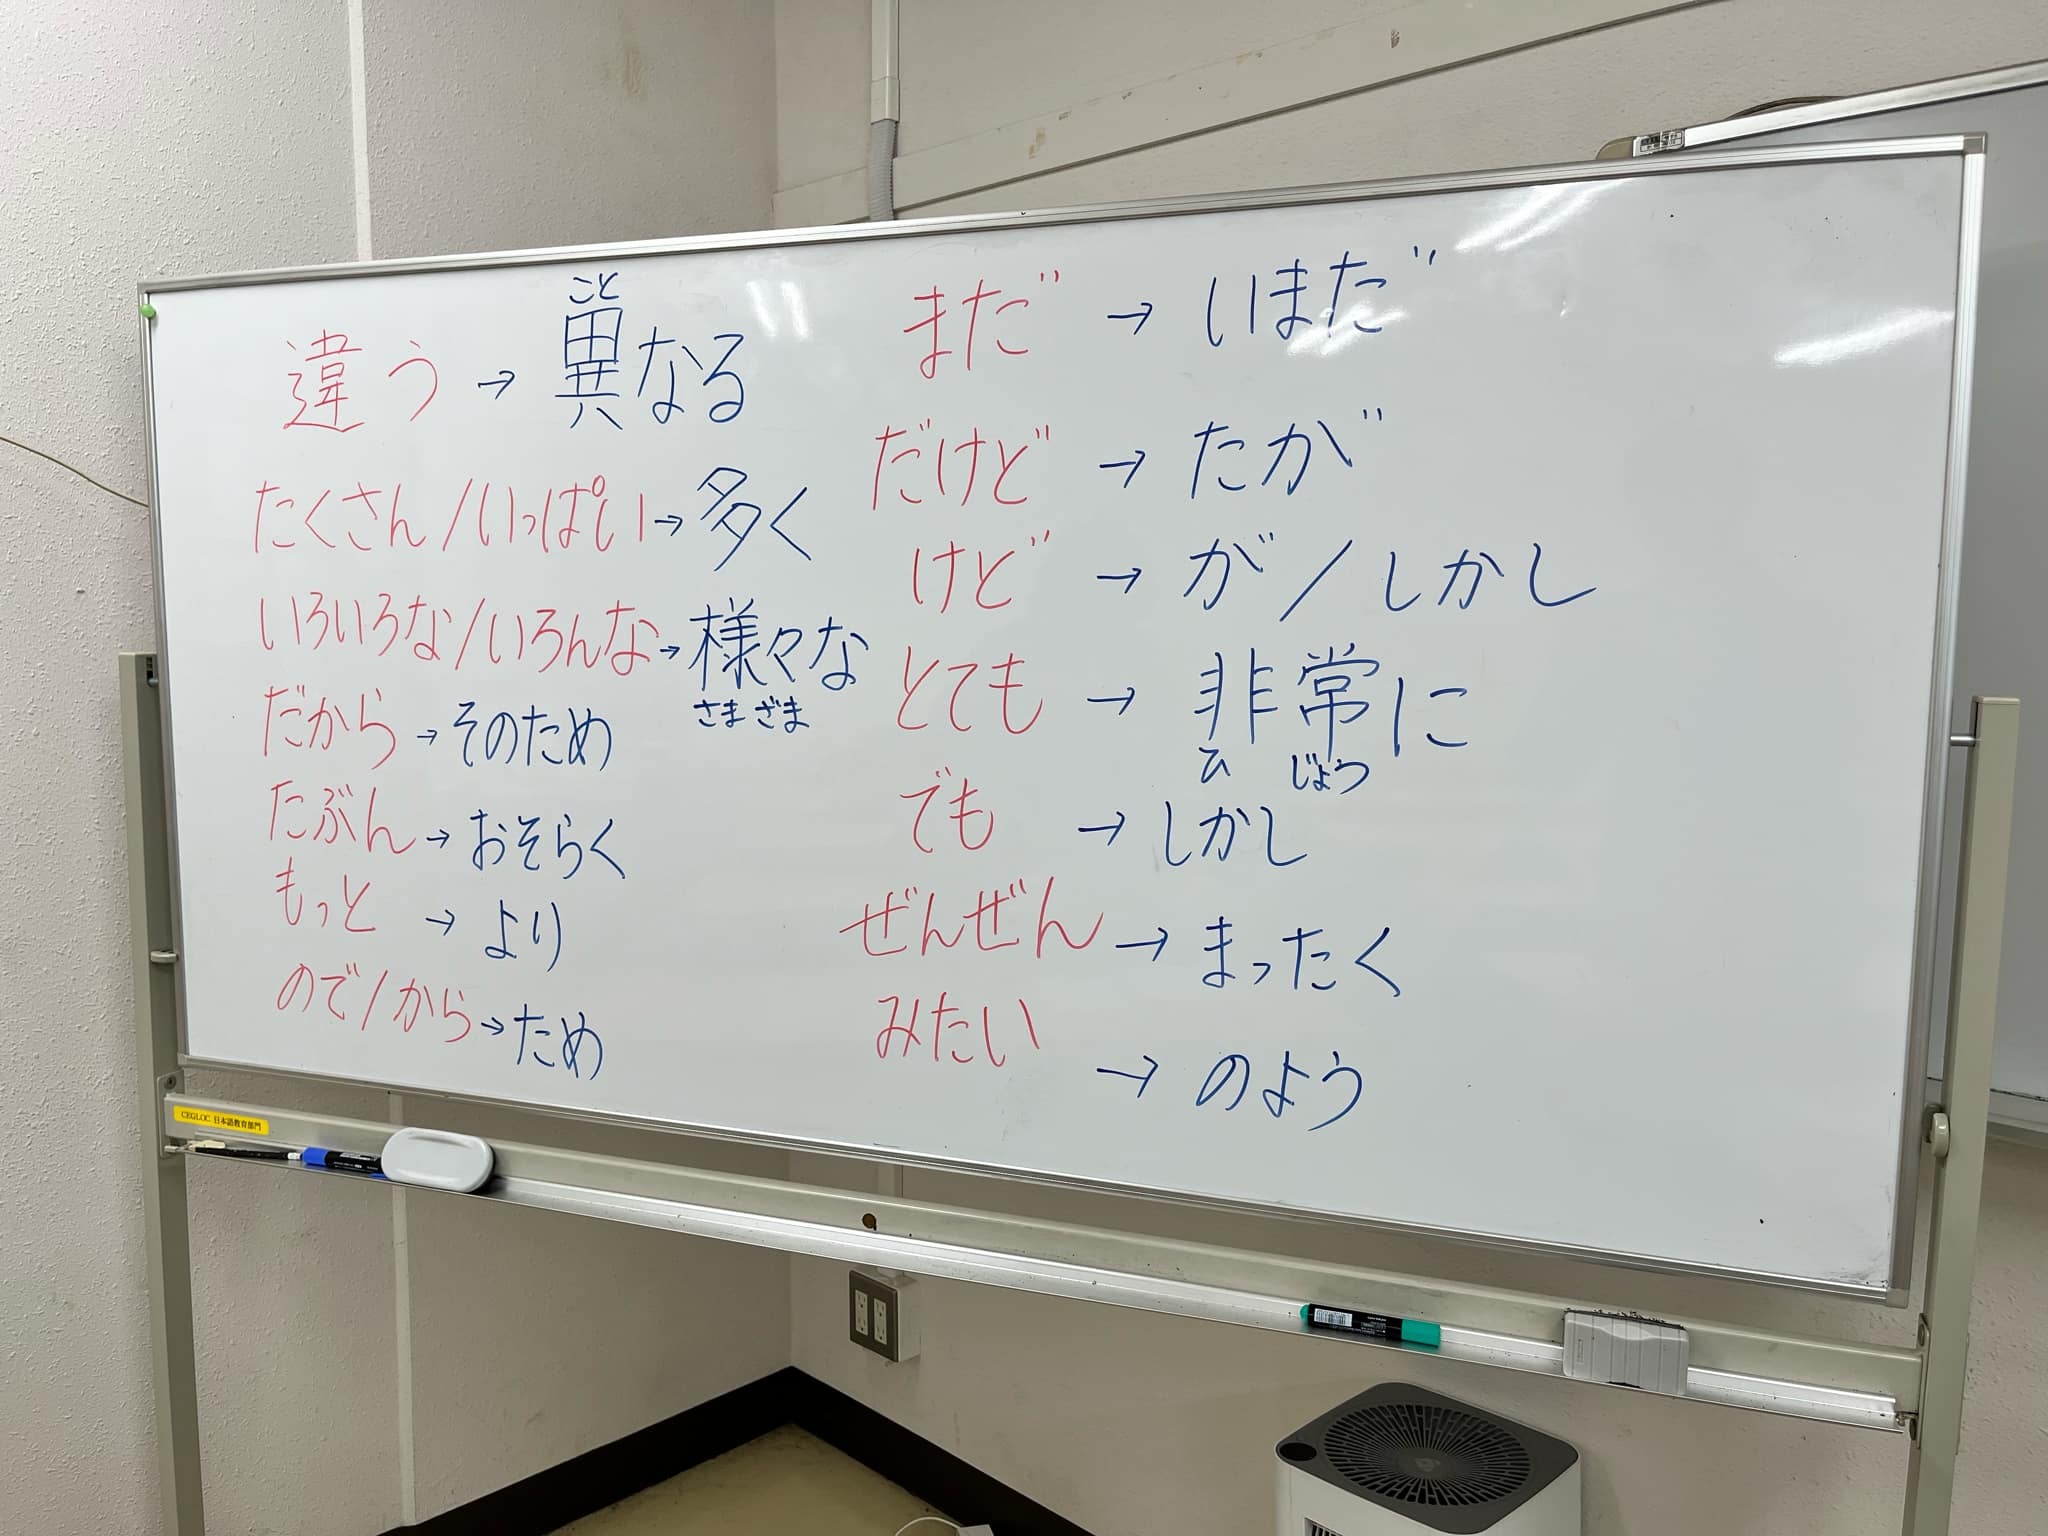 違う → 異なる
こと
たくさん/いっぱい → 多く
いろいろな/いろんな → 様々な
さまざま
だから → そのため
たぶん → おそらく
もっと → より
ので/から → ため
まだ → いまだ
だけど → たが
けど → が/しかし
とても → 非常に
ひ じょう
でも → しかし
ぜんぜん → まったく
みたい → のよう
CEGLOC 日本語教育部門